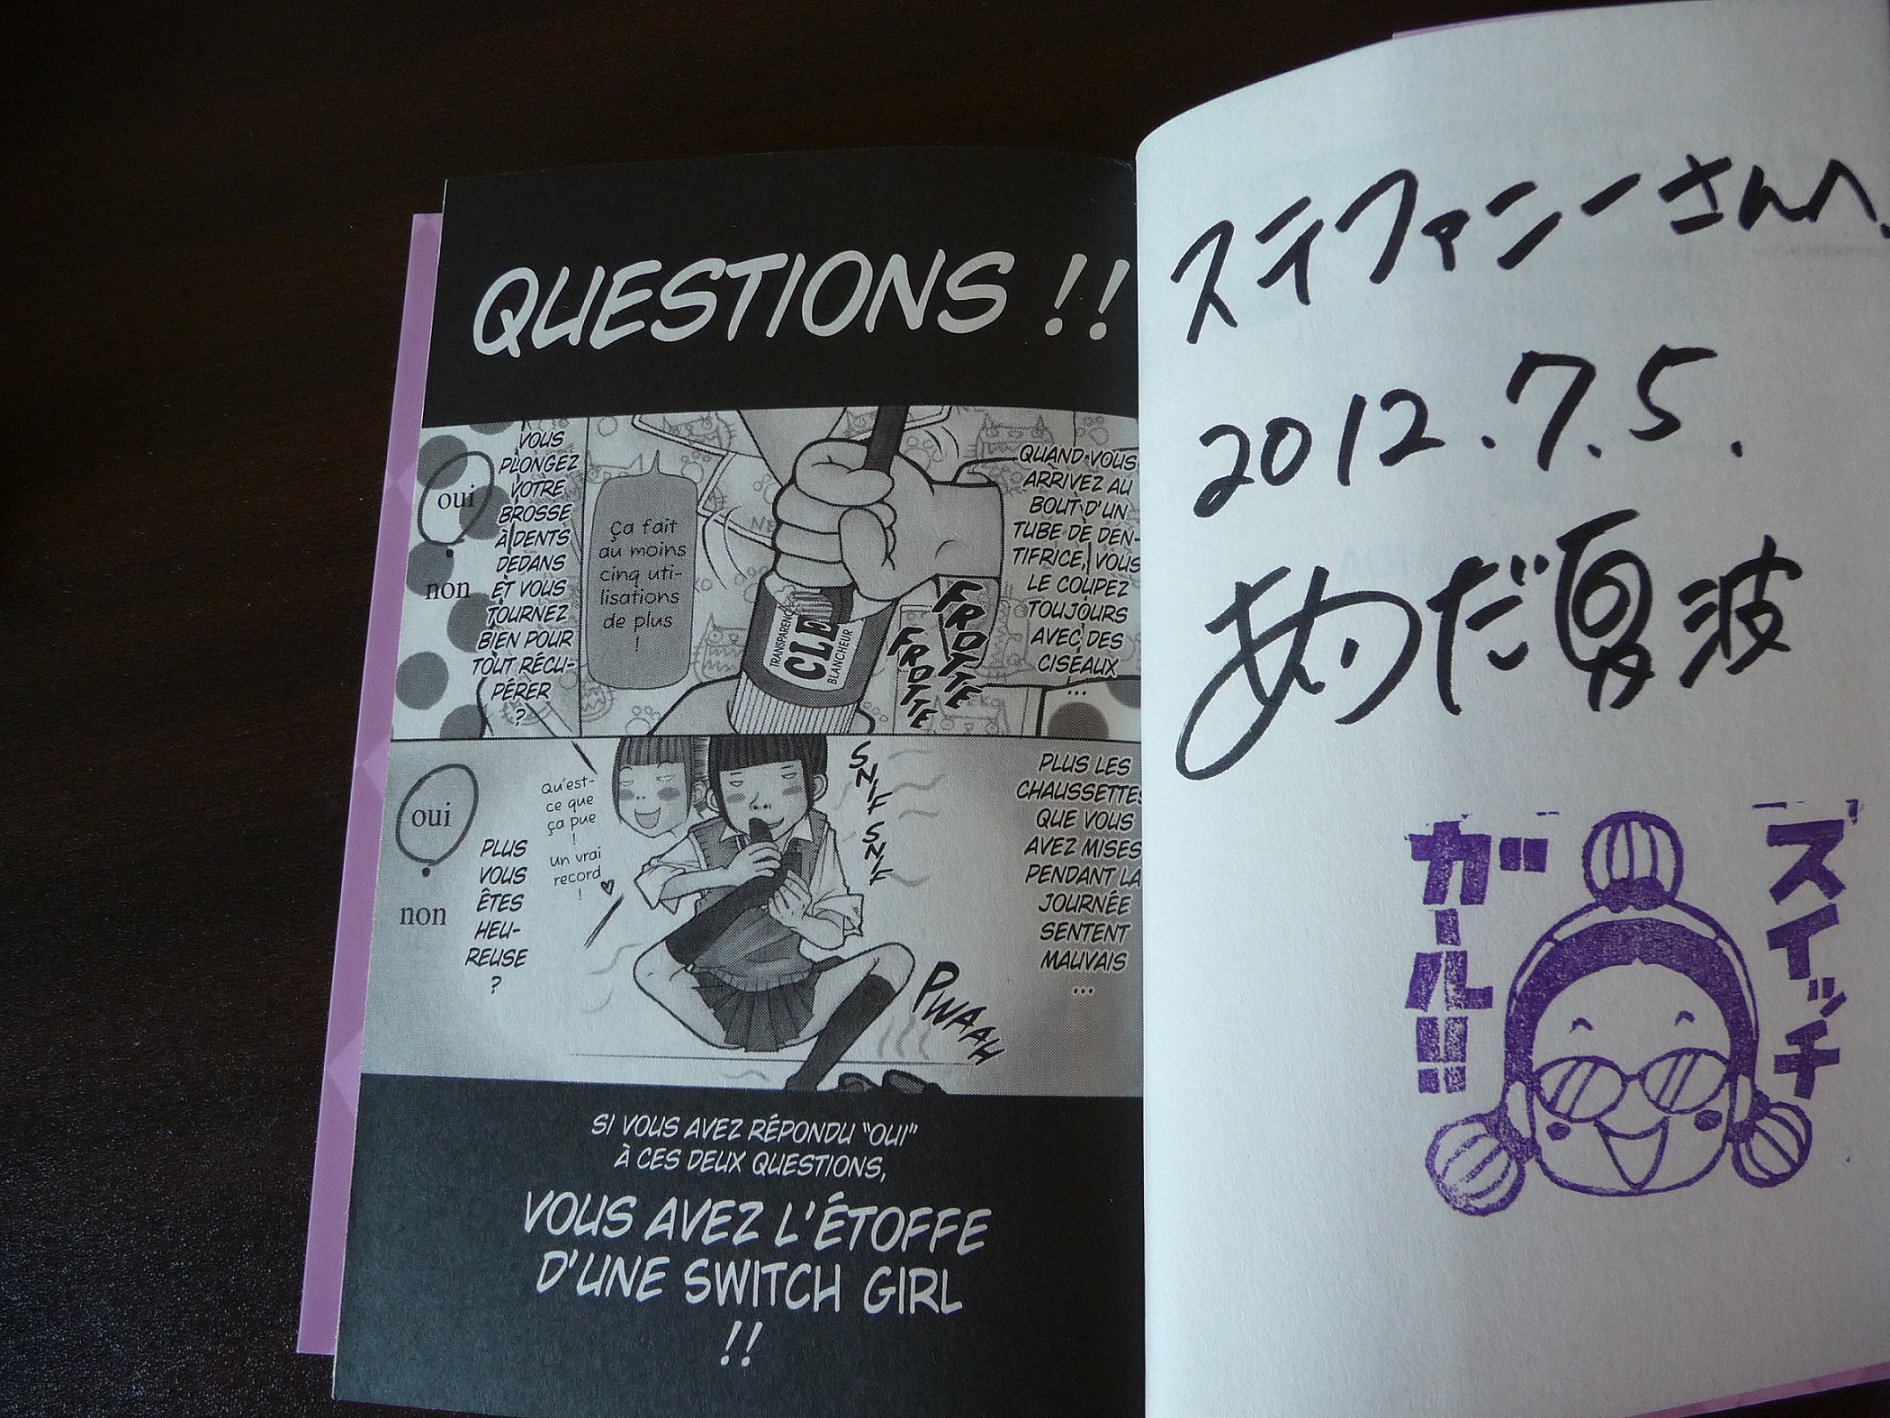 QUESTIONS !!
QUAND VOUS
ARRIVEZ AU
BOUT D'UN
TUBE DE DEN-
TIFRICE, VOUS
LE COUPEZ
TOUJOURS
AVEC DES
CISEAUX
...
FROTTE
FROTTE
TRANSPARENCE
CLE
BLANCHEUR
Ça fait
au moins
cinq uti-
lisations
de plus
!
VOUS
PLONGEZ
VOTRE
BROSSE
À DENTS
DEDANS
ET VOUS
TOURNEZ
BIEN POUR
TOUT RÉCU-
PÉRER
?
oui
non
PLUS LES
CHAUSSETTES
QUE VOUS
AVEZ MISES
PENDANT LA
JOURNÉE
SENTENT
MAUVAIS
...
SNIF SNIF
PWAAH
Qu'est-
ce que
ça pue
!
un vrai
record
!
PLUS
VOUS
ÊTES
HEU-
REUSE
?
oui
non
SI VOUS AVEZ RÉPONDU "OUI"
À CES DEUX QUESTIONS,
VOUS AVEZ L'ÉTOFFE
D'UNE SWITCH GIRL
!!
ステファニーさんへ
2012.7.5.
あいだ夏波
スイッチ
ガール!!